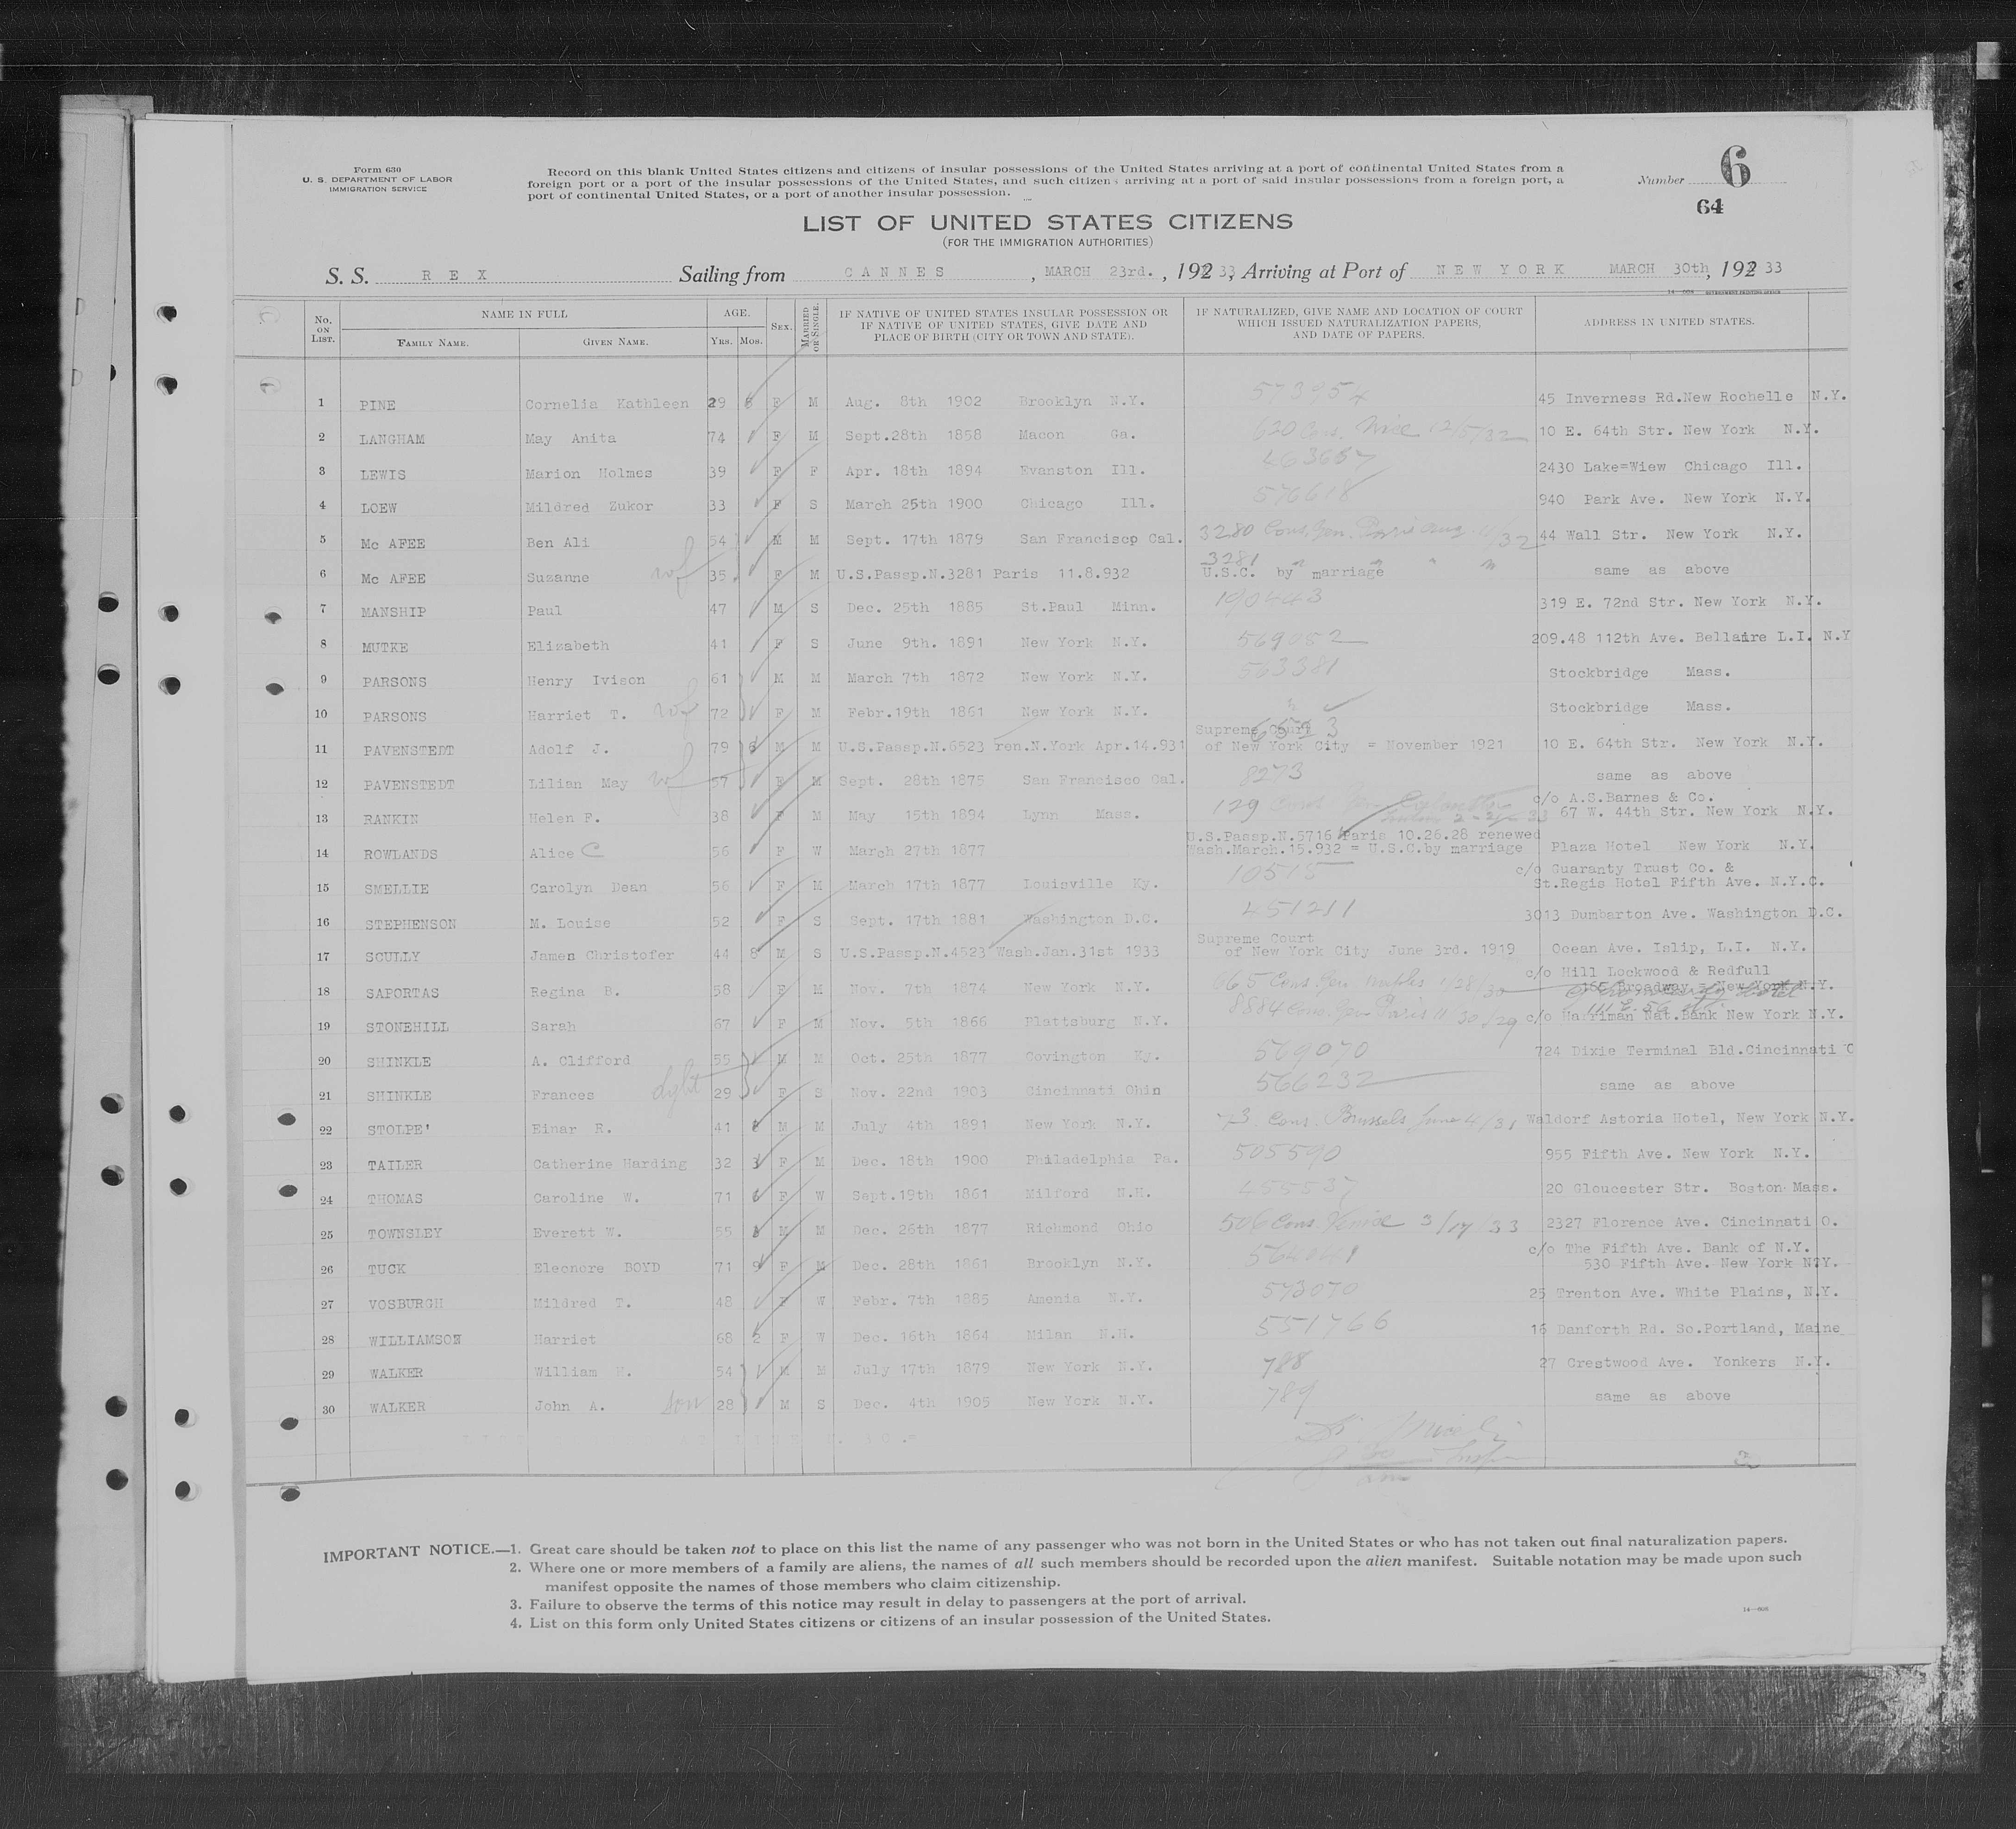 Form 630
U. S. DEPARTMENT OF LABOR
IMMIGRATION SERVICE
Record on this blank United States citizens and citizens of insular possessions of the United States arriving at a port of continental United States from a
foreign port or a port of the insular possessions of the United States, and such citizens arriving at a port of said insular possessions from a foreign port, a
port of continental United States, or a port of another insular possession.
Number 6
64
LIST OF UNITED STATES CITIZENS
(FOR THE IMMIGRATION AUTHORITIES)
S. S. REX Sailing from CANNES, MARCH 23rd., 192 33, Arriving at Port of NEW YORK MARCH 30th, 192 33
14—608 GOVERNMENT PRINTING OFFICE
No. ON LIST. NAME IN FULL FAMILY NAME. GIVEN NAME. AGE. YRS. MOS. SEX. MARRIED OR SINGLE. IF NATIVE OF UNITED STATES INSULAR POSSESSION OR IF NATIVE OF UNITED STATES, GIVE DATE AND PLACE OF BIRTH (CITY OR TOWN AND STATE). IF NATURALIZED, GIVE NAME AND LOCATION OF COURT WHICH ISSUED NATURALIZATION PAPERS, AND DATE OF PAPERS. ADDRESS IN UNITED STATES.
1 PINE Cornelia Kathleen 29 8 F M Aug. 8th 1902 Brooklyn N.Y. 573954 45 Inverness Rd.New Rochelle N.Y.
2 LANGHAM May Anita 74 F M Sept.28th 1858 Macon Ga. 620 Cons. Nice 12/5/32 10 E. 64th Str. New York N.Y.
3 LEWIS Marion Holmes 39 F F Apr. 18th 1894 Evanston Ill. 463657 2430 Lake=Wiew Chicago Ill.
4 LOEW Mildred Zukor 33 F S March 25th 1900 Chicago Ill. 576618 940 Park Ave. New York N.Y.
5 Mc AFEE Ben Ali 54 M M Sept. 17th 1879 San Francisco Cal. 3280 Cons. Gen. Paris Aug 11/32 44 Wall Str. New York N.Y.
6 Mc AFEE Suzanne wf 35 F M U.S.Passp.N.3281 Paris 11.8.932 3281 " " " "
U.S.C. by marriage same as above
7 MANSHIP Paul 47 M S Dec. 25th 1885 St.Paul Minn. 190443 319 E. 72nd Str. New York N.Y.
8 MUTKE Elizabeth 41 F S June 9th. 1891 New York N.Y. 569052 209.48 112th Ave. Bellaire L.I. N.Y
9 PARSONS Henry Ivison 61 M M March 7th 1872 New York N.Y. 563381 Stockbridge Mass.
10 PARSONS Harriet T. wf 72 F M Febr.19th 1861 New York N.Y. " Stockbridge Mass.
11 PAVENSTEDT Adolf J. 79 6 M M U.S.Passp.N.6523 ren.N.York Apr.14.931 6523 Supreme Court
of New York City = November 1921 10 E. 64th Str. New York N.Y.
12 PAVENSTEDT Lilian May wf 57 F M Sept. 28th 1875 San Francisco Cal. 8273 same as above
13 RANKIN Helen F. 38 F M May 15th 1894 Lynn Mass. 129 c/o A.S.Barnes & Co.
67 W. 44th Str. New York N.Y.
14 ROWLANDS Alice C 56 F W March 27th 1877 U.S.Passp.N.5716 Paris 10.26.28 renewed
Wash.March.15.932 = U.S.C.by marriage Plaza Hotel New York N.Y.
15 SMELLIE Carolyn Dean 56 F M March 17th 1877 Louisville Ky. 10515 c/o Guaranty Trust Co. &
St.Regis Hotel Fifth Ave. N.Y.C.
16 STEPHENSON M. Louise 52 F S Sept. 17th 1881 Washington D.C. 451211 3013 Dumbarton Ave. Washington D.C.
17 SCULLY James Christofer 44 8 M S U.S.Passp.N.4523 Wash.Jan.31st 1933 Supreme Court
of New York City June 3rd. 1919 Ocean Ave. Islip, L.I. N.Y.
18 SAPORTAS Regina B. 58 F M Nov. 7th 1874 New York N.Y. 665 Cons. Gen. Naples 1/28/30 c/o Hill Lockwood & Redfull
165 Broadway = New York N.Y.
111 E. 56
19 STONEHILL Sarah 67 F M Nov. 5th 1866 Plattsburg N.Y. 8884 Cons. Gen. Paris 11/30/29 c/o Harriman Nat.Bank New York N.Y.
20 SHINKLE A. Clifford 55 M M Oct. 25th 1877 Covington Ky. 569070 724 Dixie Terminal Bld.Cincinnati O
21 SHINKLE Frances dght 29 F S Nov. 22nd 1903 Cincinnati Ohio 566232 same as above
22 STOLPE' Einar R. 41 8 M M July 4th 1891 New York N.Y. 73 Cons. Brussels June 4/31 Waldorf Astoria Hotel, New York N.Y.
23 TAILER Catherine Harding 32 3 F M Dec. 18th 1900 Philadelphia Pa. 505590 955 Fifth Ave. New York N.Y.
24 THOMAS Caroline W. 71 6 F W Sept.19th 1861 Milford N.H. 455537 20 Gloucester Str. Boston Mass.
25 TOWNSLEY Everett W. 55 M M Dec. 26th 1877 Richmond Ohio 506 Cons. Venice 3/17/33 2327 Florence Ave. Cincinnati O.
26 TUCK Eleonore BOYD 71 9 F M Dec. 28th 1861 Brooklyn N.Y. c/o The Fifth Ave. Bank of N.Y.
530 Fifth Ave. New York N.Y.
27 VOSBURGH Mildred T. 48 F W Febr. 7th 1885 Amenia N.Y. 573070 25 Trenton Ave. White Plains, N.Y.
28 WILLIAMSON Harriet 68 2 F W Dec. 16th 1864 Milan N.H. 551766 16 Danforth Rd. So.Portland, Maine
29 WALKER William H. 54 M M July 17th 1879 New York N.Y. 788 27 Crestwood Ave. Yonkers N.Y.
30 WALKER John A. son 28 M S Dec. 4th 1905 New York N.Y. 789 same as above
IMPORTANT NOTICE.—1. Great care should be taken not to place on this list the name of any passenger who was not born in the United States or who has not taken out final naturalization papers.
2. Where one or more members of a family are aliens, the names of all such members should be recorded upon the alien manifest. Suitable notation may be made upon such
manifest opposite the names of those members who claim citizenship.
3. Failure to observe the terms of this notice may result in delay to passengers at the port of arrival.
4. List on this form only United States citizens or citizens of an insular possession of the United States.
14—608